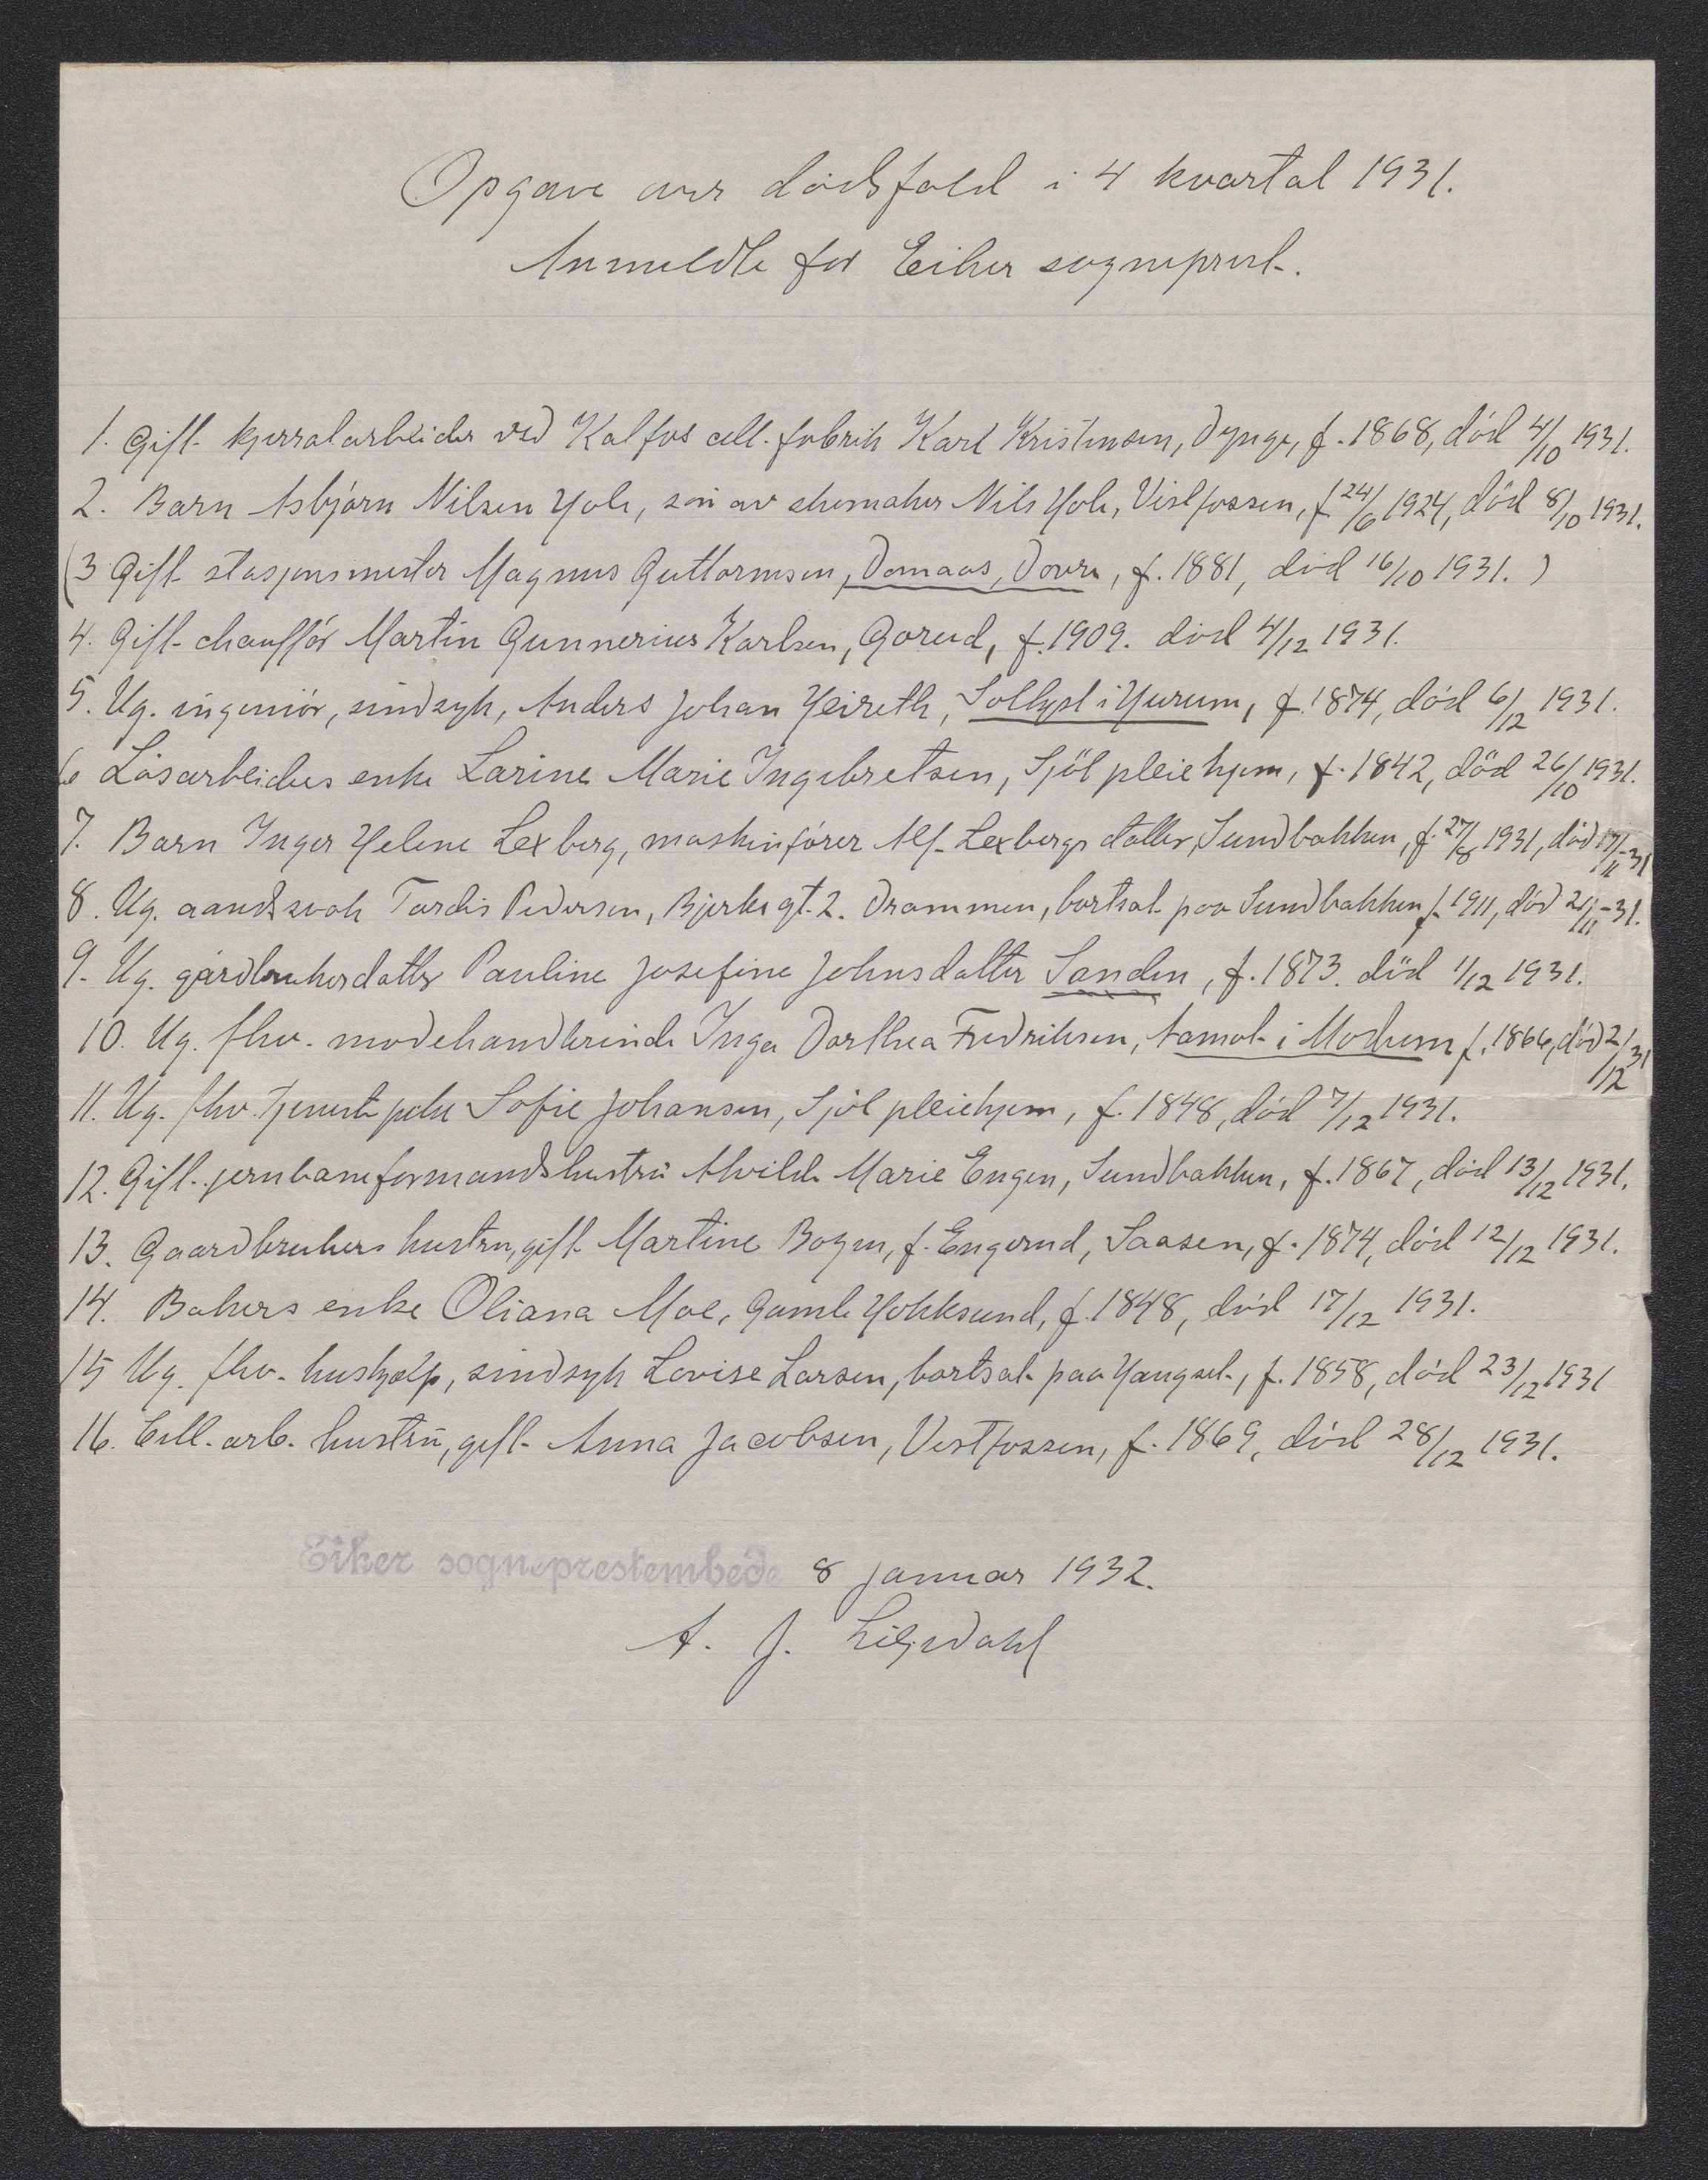 Opgave over dödsfald i 4 kvartal 1931.
Anmeldte for Eiker sogneprest.
1. Gift kjerratarbeider ved Kalfos cell. fabrik Karl Kristensen, Dynge, f. 1868, död 4/10 1931.
2. Barn Asbjörn Nilsen Hole, sön av skomaker Nils Hole, Vestfossen, f 24/6 1924, död 8/10 1931.
(3 Gift stasjonsmester Magnus Guttormsen, Domaas, Dovre, f. 1881, död 16/10 1931.)
4. Gift chaufför Martin Gunnerius Karlsen, Gorud, f. 1909. död 4/12 1931.
5. Ug. ingeniör, sindsyk, Anders Johan Heireth, Sollyst i Hurum, f. 1874, död 6/12 1931.
6 Lösarbeiders enke Larine Marie Ingebretsen, Sjöl pleiehjem, f. 1842, död 26/10 1931.
7. Barn Inger Helene Lexberg, maskinförer Alf Lexbergs datter, Sundbakken, f. 27/8 1931, död 17/11-31
8. Ug. aandssvak Tordis Pedersen, Bjerkegt. 2. Drammen, bortsat paa Sundbakken f. 1911, död 21/11-31.
9. Ug. gårdbrukerdatter Pauline Josefine Johnsdatter Sanden, f. 1873. död 1/12 1931.
10. Ug. fhv. modehandlerinde Inga Dorthea Fredriksen, Aamot i Modum f. 1866, död 2/12 31
11. Ug. fhv. tjenestepike Sofie Johansen, Sjöl pleiehjem, f. 1848, död 7/12 1931.
12. Gift. jernbaneformandshustru Alvilde Marie Engen, Sundbakken, f. 1867, död 13/12 1931.
13. Gaardbrukers hustru, gift Martine Bogen, f. Engerud, Saasen, f. 1874, död 12/12 1931.
14. Bakers enke Oliana Moe, Gamle Hokksund, f. 1848, död 17/12 1931.
15 Ug. fhv. hushjelp, sindsyk Lovise Larsen, bortsat paa Haugset, f. 1858, död 23/12 1931
16. Cell. arb. hustru, gift Anna Jacobsen, Vestfossen, f. 1869, död 28/12 1931.
Eiker sogneprestembede 8 januar 1932.
A. J.